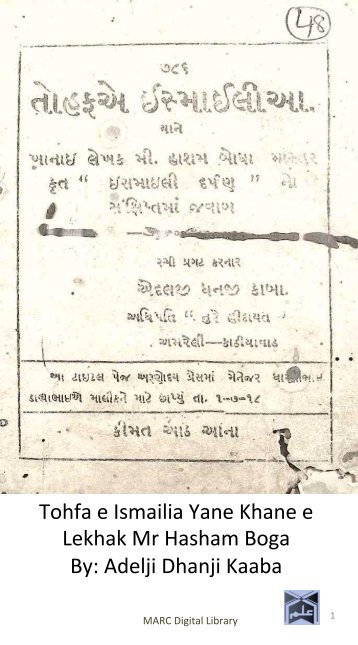 48
૭૮૬
તોહફએ ઈસ્માઈલીઆ.
યાને
ખાનાઇ લેખક મી. હાશમ બોઘા માસ્તર
કૃત “ ઇસમાઇલી દર્પણ ” નો
સંક્ષિપ્તમાં જવાબ
રચી પ્રગટ કરનાર
એદલજી ધનજી કાબા.
અધિપતિ “ નુરે હીદાયત ”
અમરેલી—કાઠીયાવાડ
આ ટાઇટલ પેજ અરૂણોદય પ્રેસમાં મેનેજર
ડાહ્યાભાઇએ માલીકને માટે છાપ્યું તા. ૧-૭-૧૮
કીંમત આઠ આના
Tohfa e Ismailia Yane Khane e
Lekhak Mr Hasham Boga
By: Adelji Dhanji Kaaba
MARC Digital Library
1